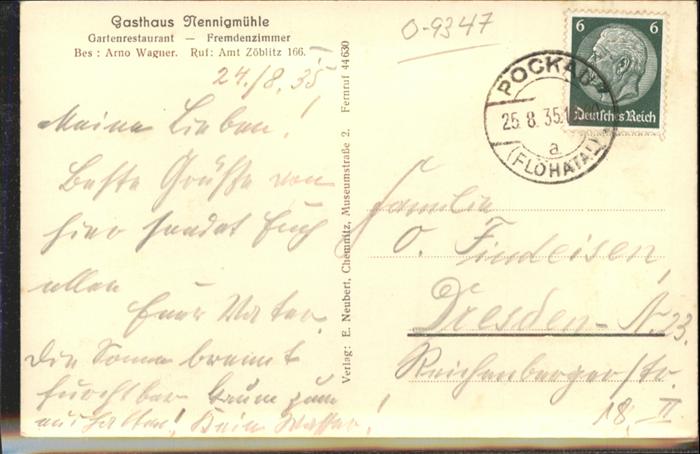 Gasthaus Nennigmühle
Gartenrestaurant — Fremdenzimmer
Bes : Arno Wagner. Ruf: Amt Zöblitz 166.
24./8. 35
Meine Lieben!
Beste Grüße von
hier sendet Euch
allen
Euer Vater.
Die Sonne brennt
furchtbar kaum zum
aushalten! Kein Wasser!
Verlag: E. Neubert, Chemnitz, Museumstraße 2. Fernruf 44630
0-9347
6 6
Deutsches Reich
POCKAU
25.8.35.1
a
(FLÖHATAL)
Familie
O. Findeisen,
Dresden-N.23.
Reichenbergerstr.
18. II